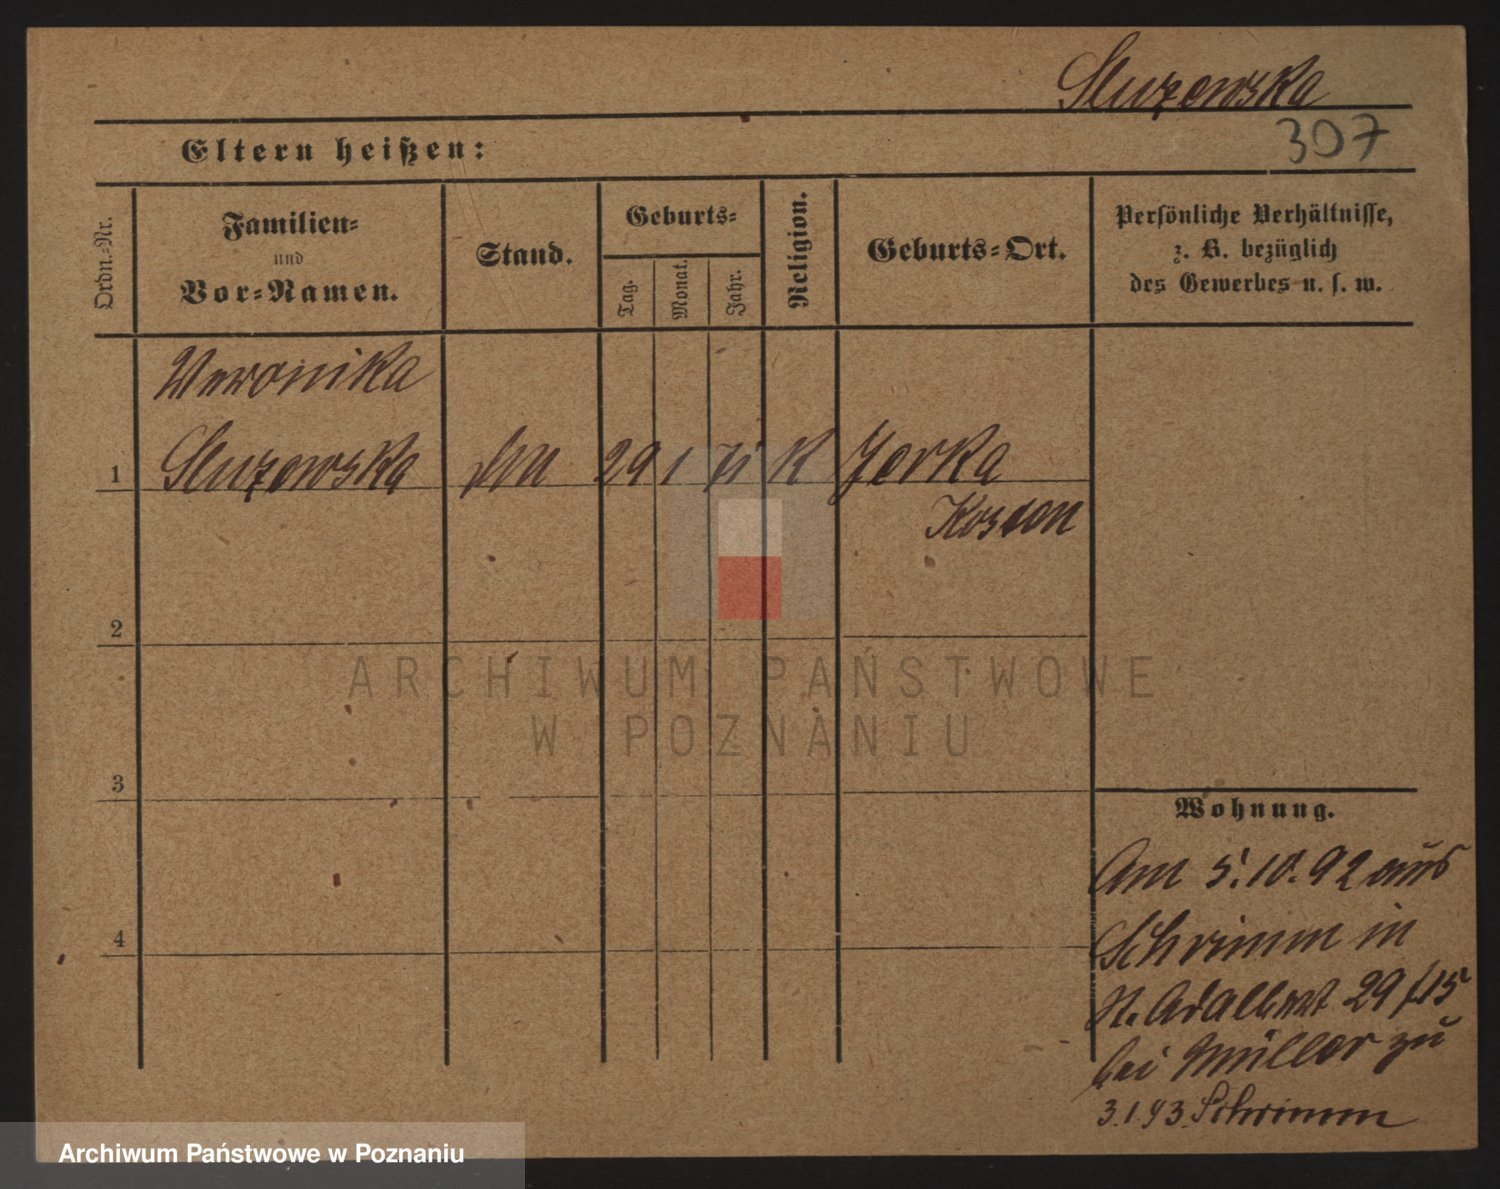 Sluzewska
307
Eltern heißen:
Ordn.-Nr.
Familien-
und
Vor-Namen.
Stand.
Geburts-
Tag.
Monat.
Jahr.
Religion.
Geburts-Ort.
Persönliche Verhältnisse,
z. B. bezüglich
des Gewerbes u. s. w.
Veronika
1 Sluzewska 29 1 71 K Jerka
Kosten
2
3
4
Wohnung.
Am 5.10.92 aus
Schrimm in
St. Adalbert 29/15
bei Müller zu
3.1.93. Schrimm
ARCHIWUM PAŃSTWOWE
W POZNANIU
Archiwum Państwowe w Poznaniu